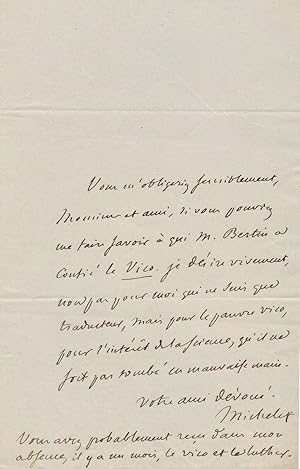 Vous m'obligeriez sensiblement,
Monsieur et ami, si vous pouviez
me faire savoir à qui M. Bertin a
confié le Vico. je désire vivement,
non pas pour moi qui ne suis que
traducteur, mais pour le pauvre vico,
pour l'intérêt de la science, qu'il ne
soit pas tombé en mauvaise main.
Votre ami dévoué.
Michelet
Vous avez probablement reçu dans mon
absence, il y a un mois, le vico et le luther.